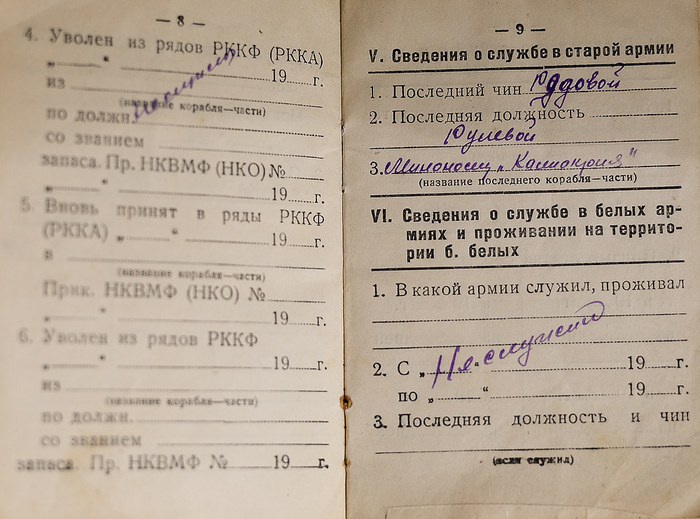 — 8 —
4. Уволен из рядов РККФ (РККА)
„ “ 19 г.
из
(название корабля—части)
по должн. Не служил
со званием
запаса. Пр. НКВМФ (НКО) №
„ “ 19 г.
5. Вновь принят в ряды РККФ
(РККА) „ “ 19 г.
в
(название корабля—части)
Прик. НКВМФ (НКО) №
19 г.
6. Уволен из рядов РККФ
„ “ 19 г.
из
(название корабля—части)
по должн.
со званием
запаса. Пр. НКВМФ № 19 г.
— 9 —
V. Сведения о службе в старой армии
1. Последний чин Рядовой
2. Последняя должность
Рулевой
3. Миноносец „
(название последнего корабля—части)
VI. Сведения о службе в белых ар-
миях и проживании на террито-
рии б. белых
1. В какой армии служил, проживал
Не служил
2. С „ “ 19 г.
по „ “ 19 г.
3. Последняя должность и чин
(если служил)